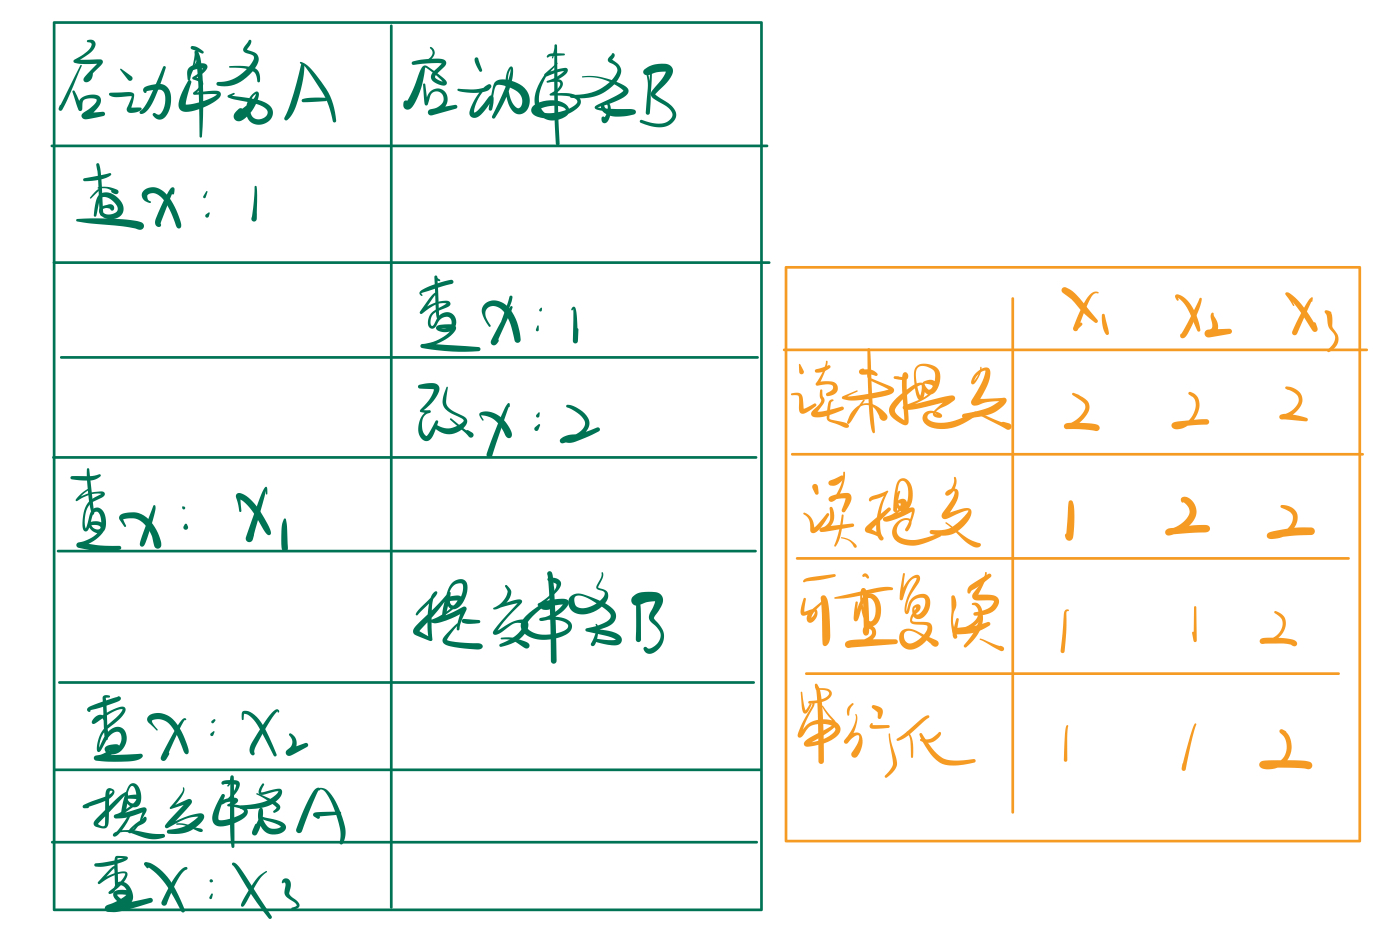 启动事务A 启动事务B
查X: 1
查X: 1
改X: 2
查X: X1
提交事务B
查X: X2
提交事务A
查X: X3
X1 X2 X3
读未提交 2 2 2
读提交 1 2 2
可重复读 1 1 2
串行化 1 1 2